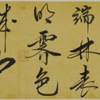 端林表
明霽色
城